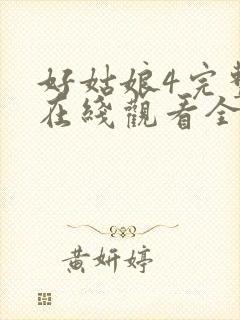 好姑娘4完整
在綫觀看全
黄妍婷